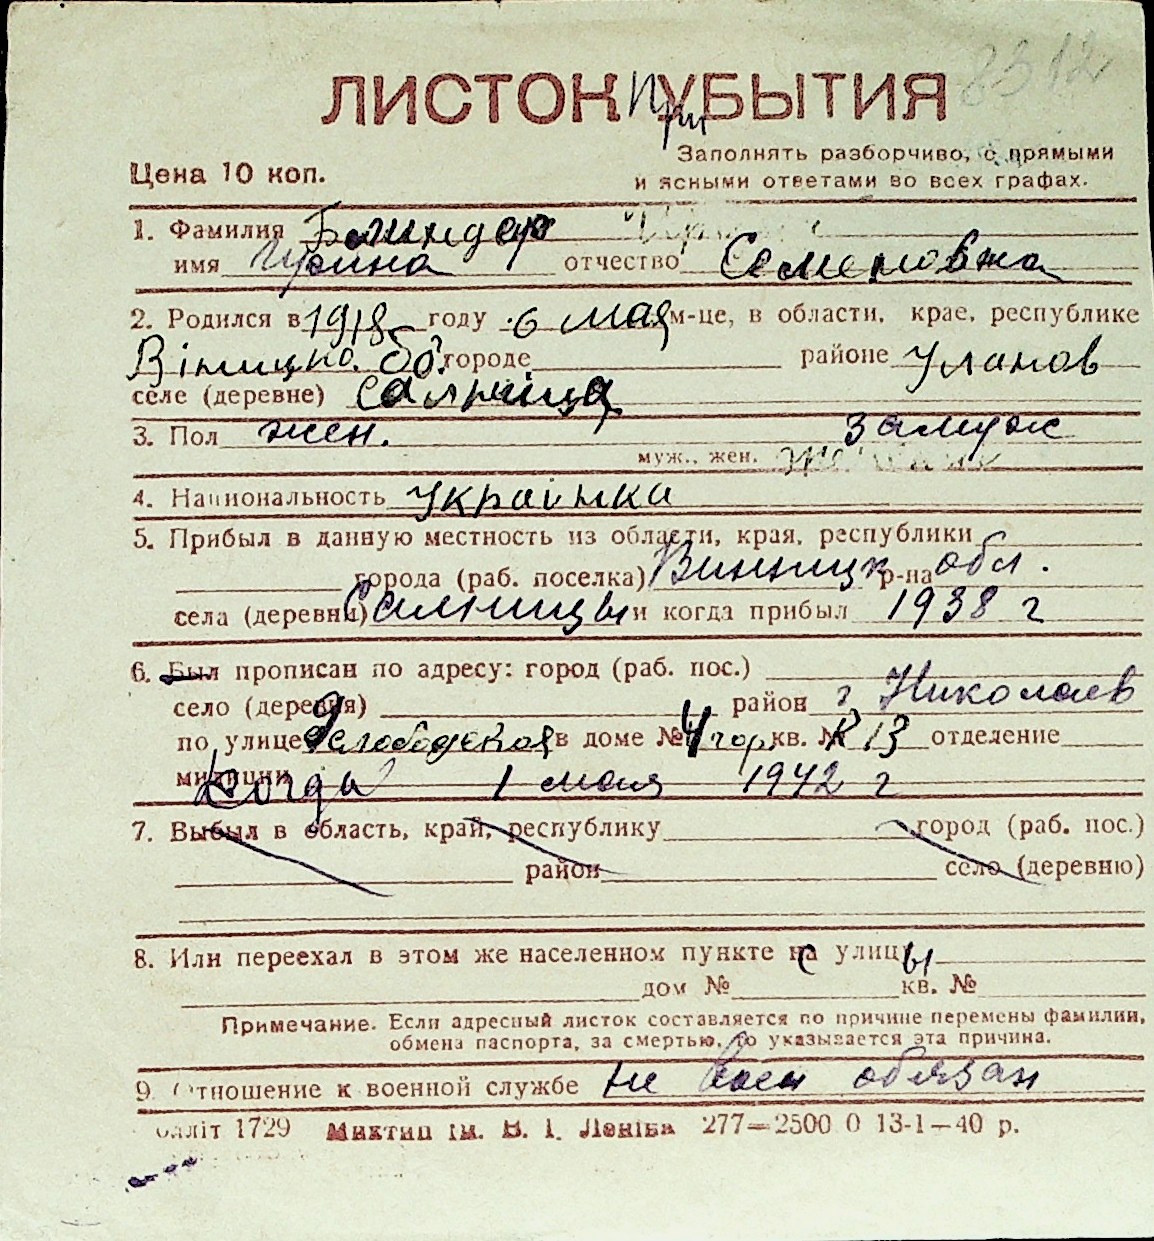 8312
ЛИСТОК ПриУБЫТИЯ
Заполнять разборчиво, с прямыми
Цена 10 коп.
и ясными ответами во всех графах.
1. Фамилия
имя Ирина отчество Семеновна
2. Родился в 1918 году 6 мая м-це, в области, крае, республике
городе районе Уланов
селе (деревне) Сальница
3. Пол жен. замуж
муж., жен.
4. Национальность Украінка
5. Прибыл в данную местность из области, края, республики
города (раб. поселка) Винницк р-на обл.
села (деревни) Салницы и когда прибыл 1938 г
6. Был прописан по адресу: город (раб. пос.)
село (деревня) район г Николаев
по улице Слободская в доме № 4 гор кв. № К 13 отделение
милиции Когда 1 мая 1942 г
7. Выбыл в область, край, республику город (раб. пос.)
район село (деревню)
8. Или переехал в этом же населенном пункте с улицы
дом № кв. №
Примечание. Если адресный листок составляется по причине перемены фамилии,
обмена паспорта, за смертью, то указывается эта причина.
9. Отношение к военной службе не воен обязан
1729 Миктип ім. В. І. Леніна 277—2500 0 13-1—40 р.